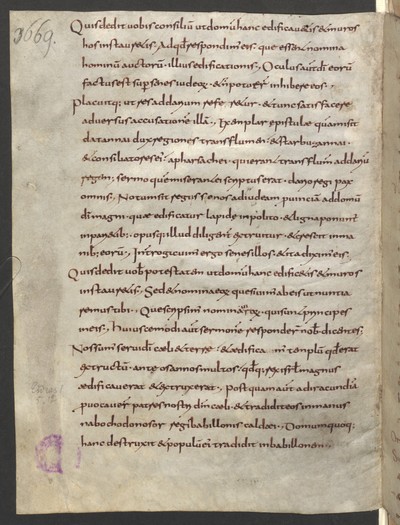 3669.
Quis dedit vobis consiliū ut domū hanc edificaretis & muros
hos instauretis; Ad qd̄ respondim' eis; que essent nomina
hominū auctorū illius edificationis; Oculus aut dī eorū
factus est sup senes iudeoꝝ & n̄ potoer̄ inhibere eos;
Placuitq; ut res ad darium referretur & tunc satisfacere
adversus accusationē illā; Exemplar epistulae quā misit
datannai dux regiones trans flumen & starbuzannai
& consiliatores ei apharsachei qui erant trans flumī ad dariū
regem; sermo quē miserant ei sc scriptus erat dario regi pax
omnis; Notū sit regi isse nos ad iudeam puinciā ad domū
dī magni quae edificatur lapide inpolito & ligna ponunt
in parietib; opusq illud diligent' extruitur & crescit in ma
nib; eorū; Interrogavim' ergo senes illos & ita dixim' eis;
Quis dedit vob potestatem ut domū hanc edificetis & muros
instauretis; Sed & nomina eoꝝ quesivim' ab eis ut nuntia
remus tibi; Que scripsim' nomina viroꝝ qui sunt principes
in eis; Huiuscemodi aut sermonē responder̄ nob dicentes;
Nos sum' servi dī caeli & terre & aedificam' templū qd erat
extructū ante os annos multos qdq rex isrl magnus
aedificaverat & extruxerat; Postquam aut ad iracundiā
pvocaver̄ patres nostri dm̄ caeli & tradidit eos in manus
nabochodonosor regis babillonis caldaei; Domum quoq;
hanc destruxit & populū ei' tradidit in babillonem;